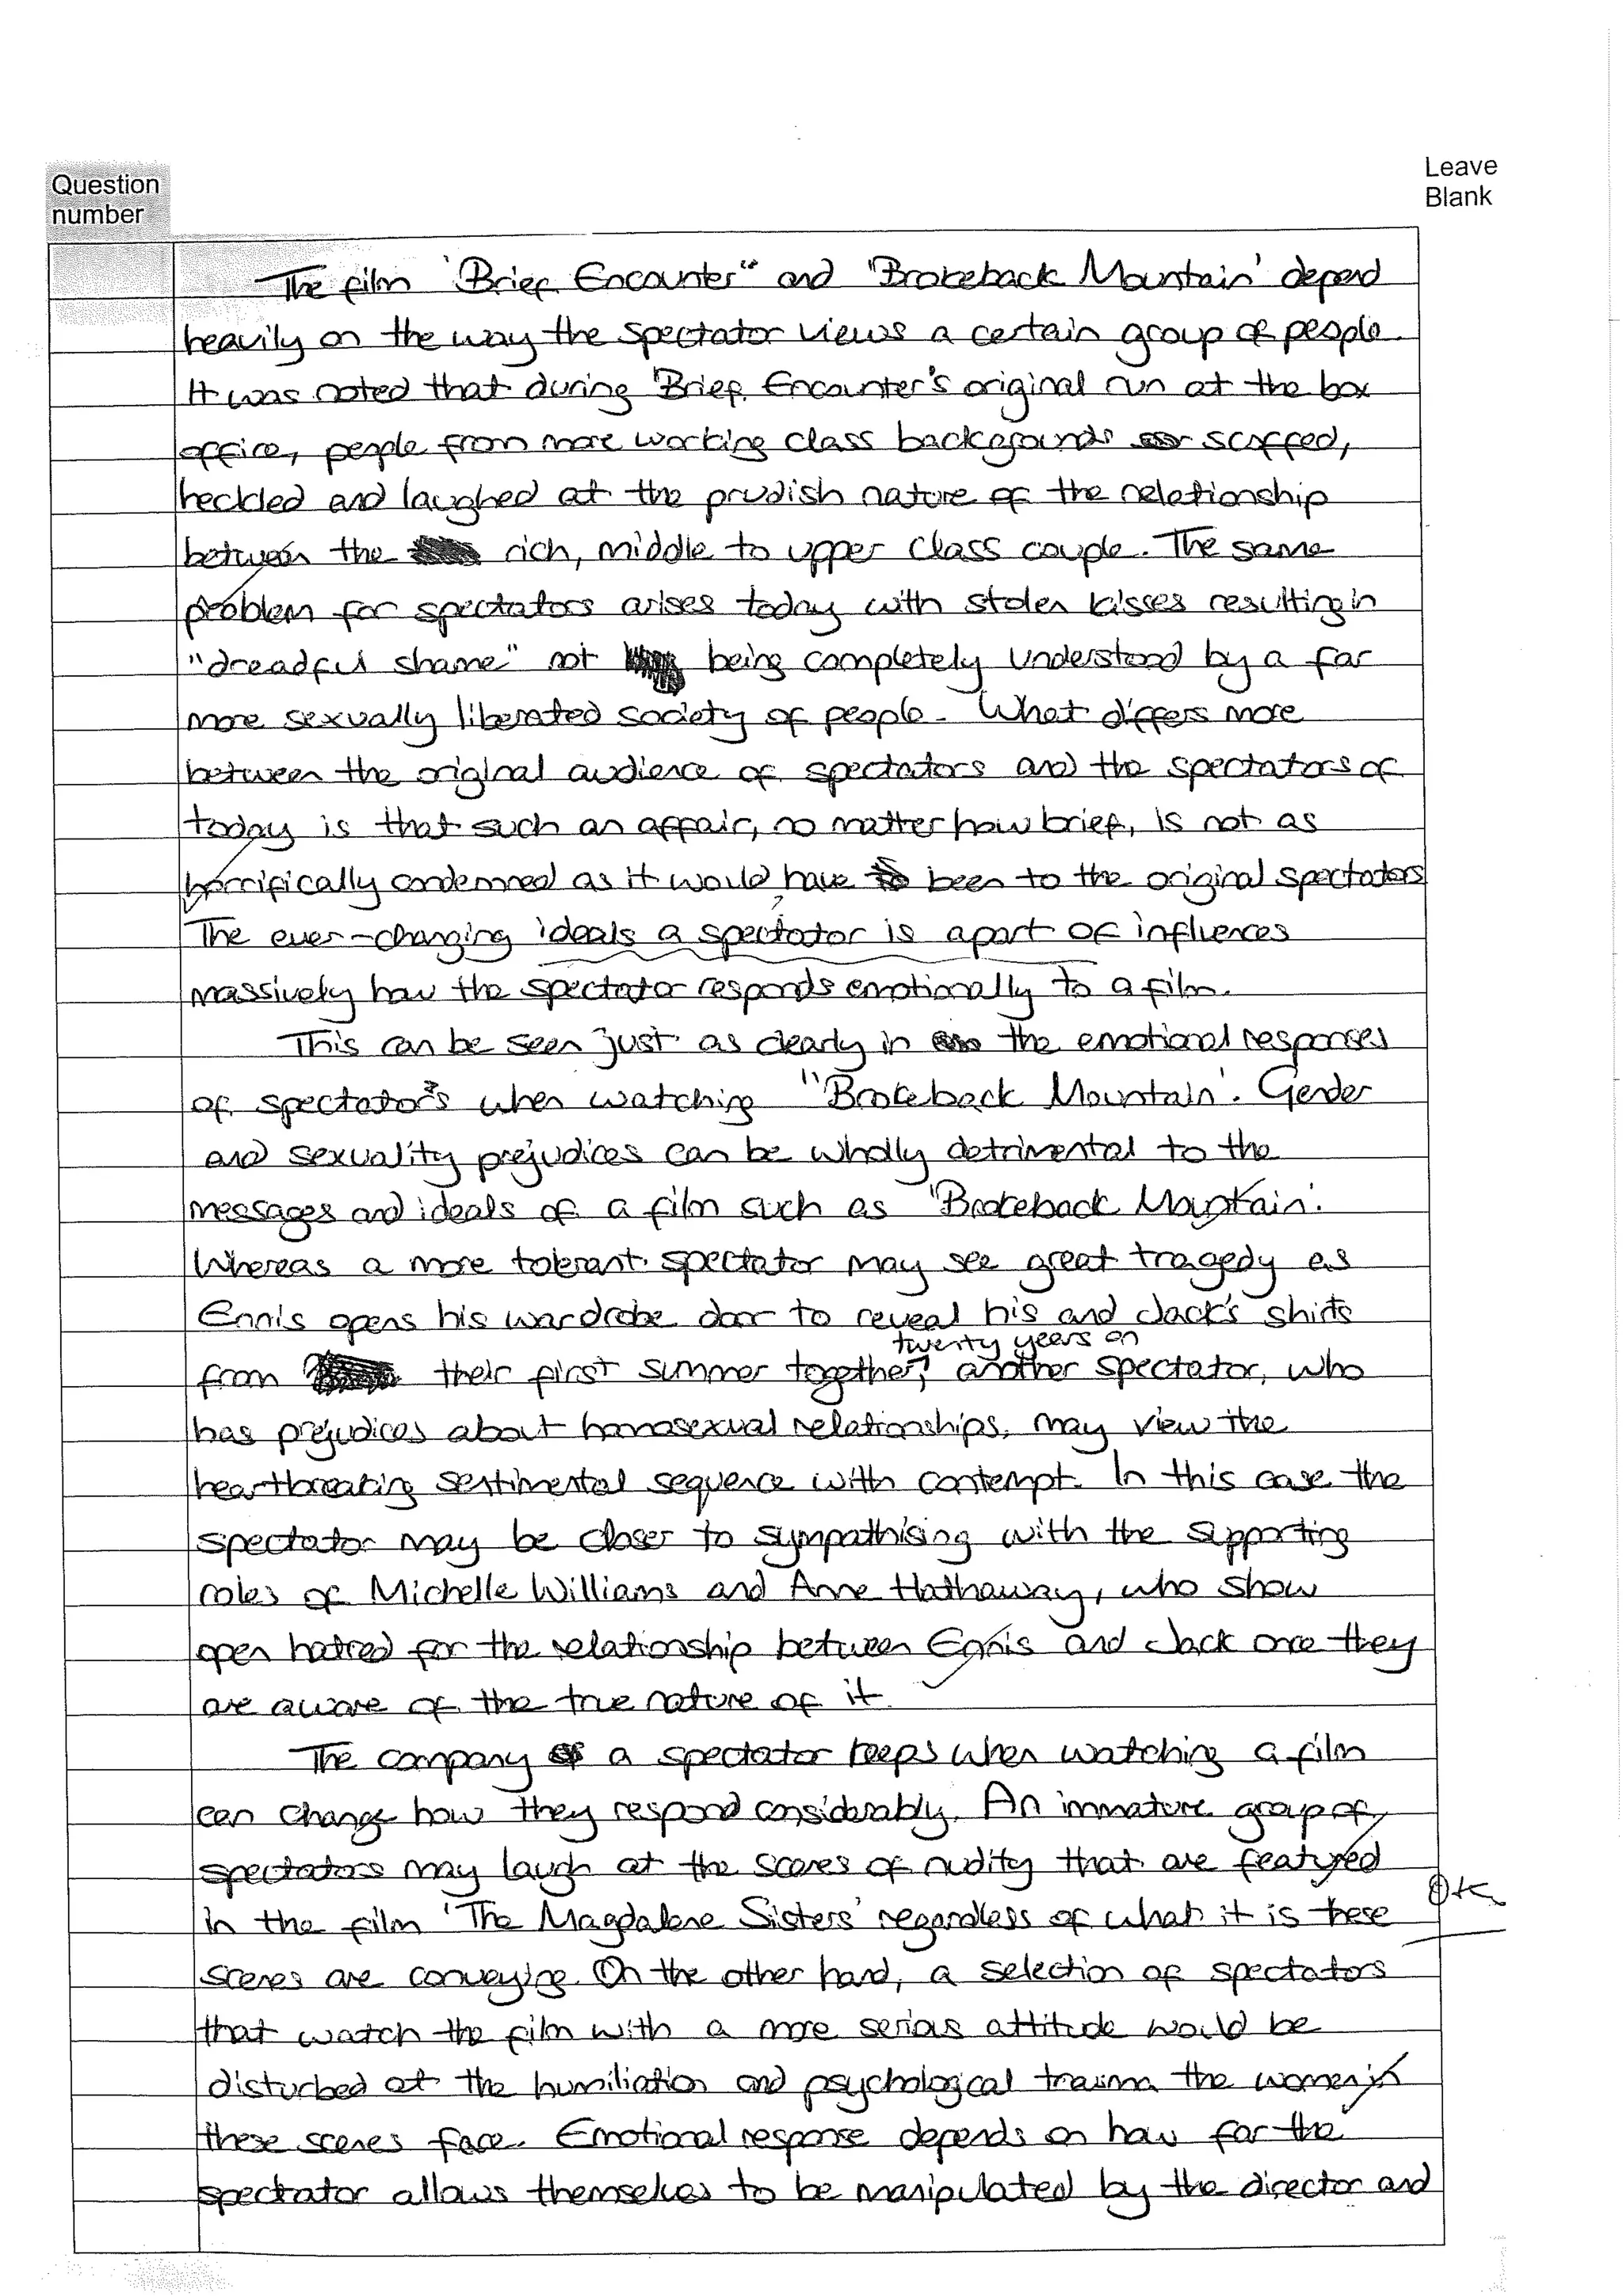 Question
number
Leave
Blank
The film 'Brief Encounter" and "Brokeback Mountain' depend
heavily on the way the spectator views a certain group of people.
It was noted that during 'Brief Encounter's original run at the box
office, people from more working class backgrounds scoffed,
heckled and laughed at the prudish nature of the relationship
between the rich, middle to upper class couple. The same
problem for spectators arises today with stolen kisses resulting in
"dreadful shame" not being completely understood by a far
more sexually liberated society of people. What differs more
between the original audience of spectators and the spectators of
today is that such an affair, no matter how brief, is not as
horrifically condemned as it would have been to the original spectators
?
The ever-changing ideals a spectator is apart of influences
massively how the spectator responds emotionally to a film.
This can be seen just as clearly in the emotional responses
of spectators when watching "Brokeback Mountain'. Gender
and sexuality prejudices can be wholly detrimental to the
messages and ideals of a film such as "Brokeback Mountain'.
Whereas a more tolerant spectator may see great tragedy as
Ennis opens his wardrobe door to reveal his and Jack's shirts
twenty years on
from their first summer together, another spectator, who
has prejudices about homosexual relationships, may view the
heartbreaking sentimental sequence with contempt. In this case the
spectator may be closer to sympathising with the supporting
roles of Michelle Williams and Anne Hathaway, who show
open hatred for the relationship between Ennis and Jack once they
are aware of the true nature of it.
The company a spectator keeps when watching a film
can change how they respond considerably. An immature group of
spectators may laugh at the scenes of nudity that are featured
OK
in the film 'The Magdalene Sisters' regardless of what it is these
scenes are conveying. On the other hand, a selection of spectators
that watch the film with a more serious attitude would be
disturbed at the humiliation and psychological trauma the women in
these scenes face. Emotional response depends on how far the
spectator allows themselves to be manipulated by the director and